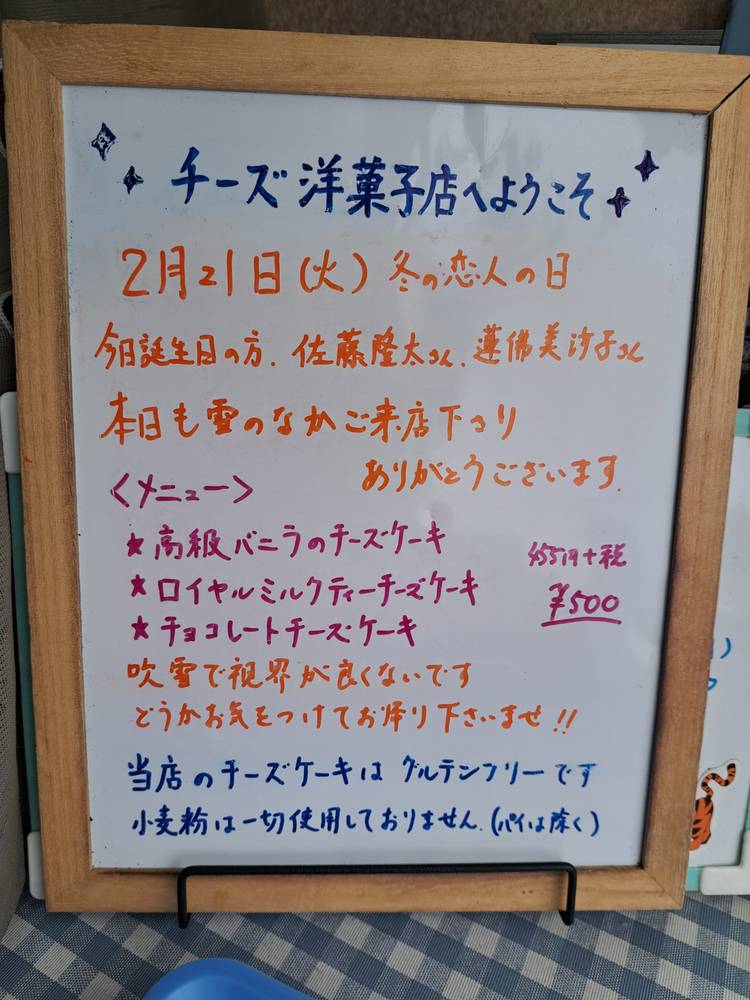 チーズ洋菓子店へようこそ
2月21日(火) 冬の恋人の日
今日誕生日の方、佐藤隆太さん、蓮佛美沙子さん
本日も雪のなかご来店下さり
ありがとうございます。
<メニュー>
★高級バニラのチーズケーキ
★ロイヤルミルクティーチーズケーキ
★チョコレートチーズケーキ
455円+税
¥500
吹雪で視界が良くないです
どうかお気をつけてお帰り下さいませ!!
当店のチーズケーキは グルテンフリーです
小麦粉は一切使用しておりません。(パイは除く)